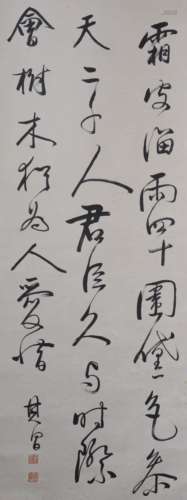 霜皮溜雨四十圍黛色參
天二千尺君臣已与時際
會樹木猶為人愛惜 其昌